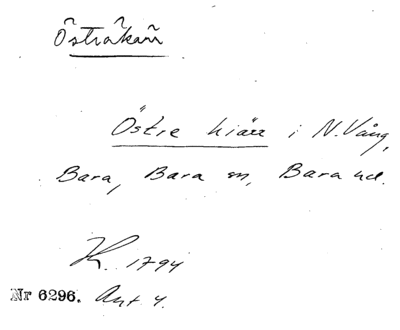 Östra kärr
Östre kiärr i N. Vång,
Bara, Bara sn, Bara hd.
K. 1794
Nr 6296. Akt 4.